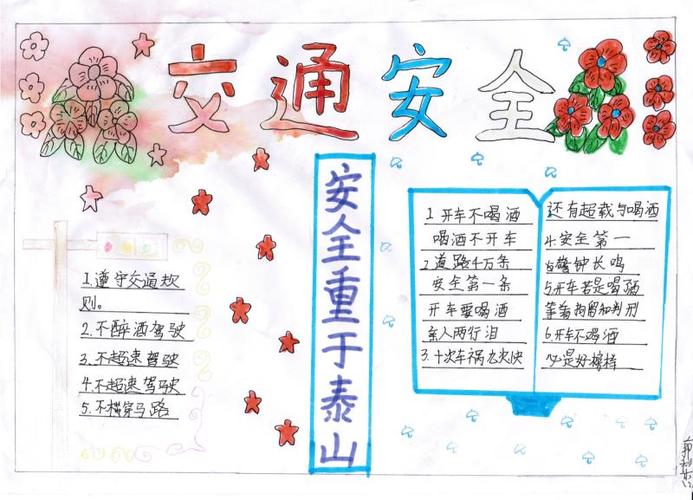 交通安全
安全重于泰山
1.遵守交通规
则。
2.不醉酒驾驶
3.不超速驾驶
4.不超速驾驶
5.不横穿马路
1开车不喝酒
喝酒不开车
2道路千万条
安全第一条
开车要喝酒
亲人两行泪
3.十次车祸九次快
还有超载与喝酒
4.安全第一
警钟长鸣
5开车若是喝酒
等着拘留和判刑
6开车不喝酒
必是好榜样